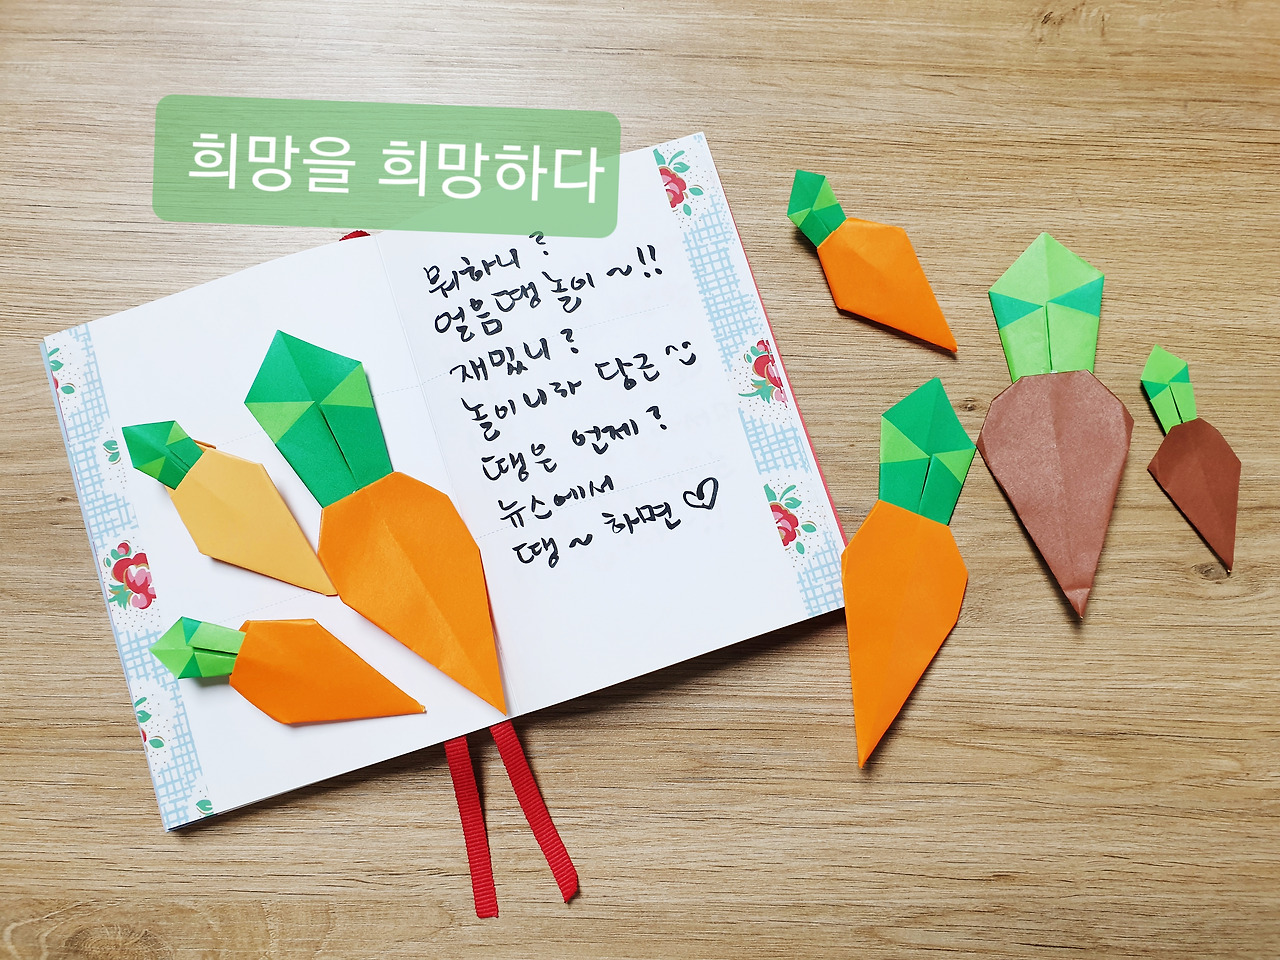 희망을 희망하다
뭐하니?
얼음땡 놀이~!!
재밌니?
놀이니라 당근
땡은 언제?
뉴스에서
땡~ 하면